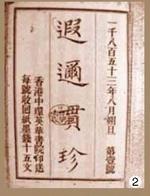 一千八百五十三年八月朔旦 第壹號
遐邇貫珍
香港中環英華書院印送
每號收回紙墨錢十五文
2